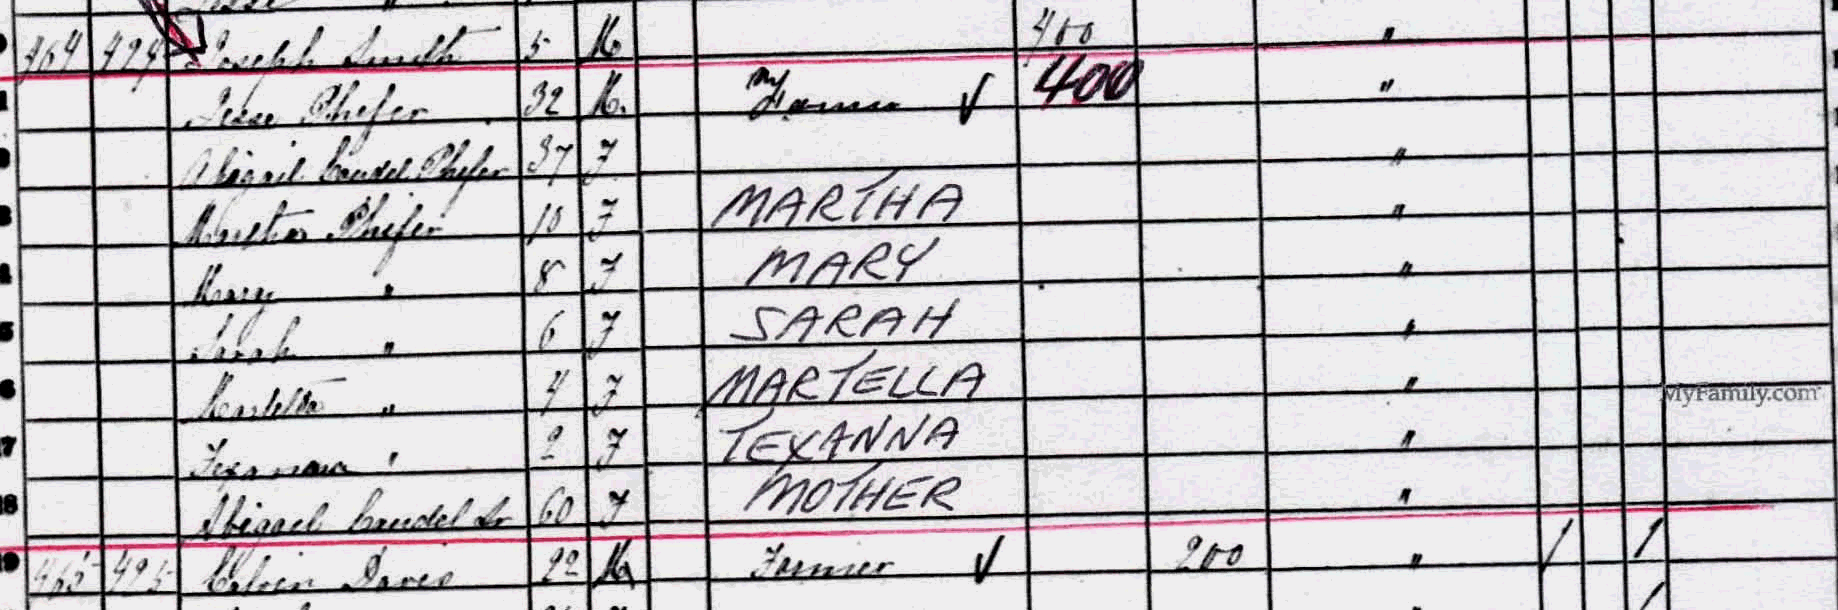 464 424 Joseph Smith 5 M 400 "
Jesse Phifer 32 M. Farmer √ 400 "
Abigail Caudel Phifer 37 F "
Martha Phifer 10 F MARTHA "
Mary " 8 F MARY "
Sarah " 6 F SARAH "
Martella " 4 F MARTELLA "
MyFamily.com
Texanna " 2 F TEXANNA "
Abigail Caudel Sr 60 F MOTHER "
465 425 Calvin Davis 22 M Farmer √ 200 " / /